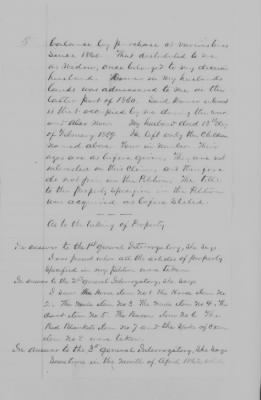 5
balance by purchase at various times
since 1860. That distributed to me
as Widow, once belonged to my deceased
husband. Dower in my husbands
lands was admeasured to me in the
latter part of 1860. Said
is that occupied by me during the war
and also now. My husband died 13th day
of February 1859. He left only the Children
named above four in number. Their
ages are as before given. They are not
interested in this Claim, and therefore
do not join in the Petition. The title
to the property specified in the Petition
was acquired as before stated.
As to the taking of Property
In answer to the 1st General Interrogatory, She says
I was present when all the articles of property
specified in my petition were taken
In answer to the 2nd General Interrogatory, She says
I saw the Horse Item No 1 the Horse Item No
2. The Mule Item No 3 The Mule Item No 4. The
Item No 5. The Bacon Item No 6 The
Bed Blankets Item No 7 and the Yoke of Oxen
Item No 8 were taken
In answer to the 3rd General Interrogatory, She says
Sometime in the month of April 1865